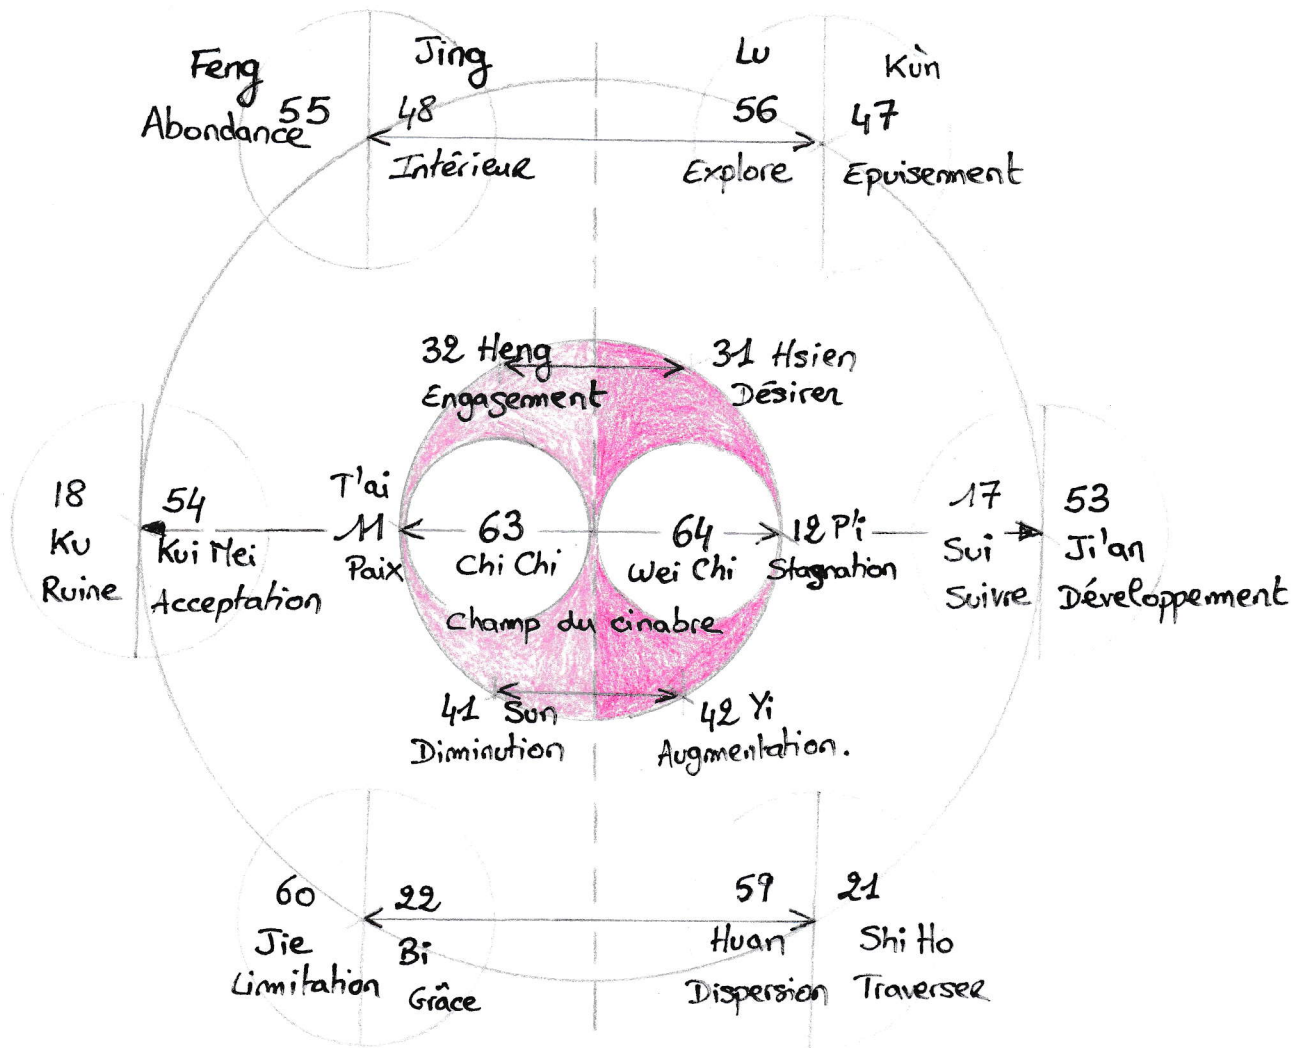 Feng
55
Abondance
Jing
48
Intérieur
Lu
56
Explore
Kùn
47
Epuisement
32 Heng
Engagement
31 Hsien
Désirer
18
Ku
Ruine
54
Kui Mei
Acceptation
T'ai
11
Paix
63
Chi Chi
64
Wei Chi
12 P'i
Stagnation
17
Sui
Suivre
53
Ji'an
Développement
Champ du cinabre
41 Sun
Diminution
42 Yi
Augmentation.
60
Jie
Limitation
22
Bi
Grâce
59
Huan
Dispersion
21
Shi Ho
Traverser